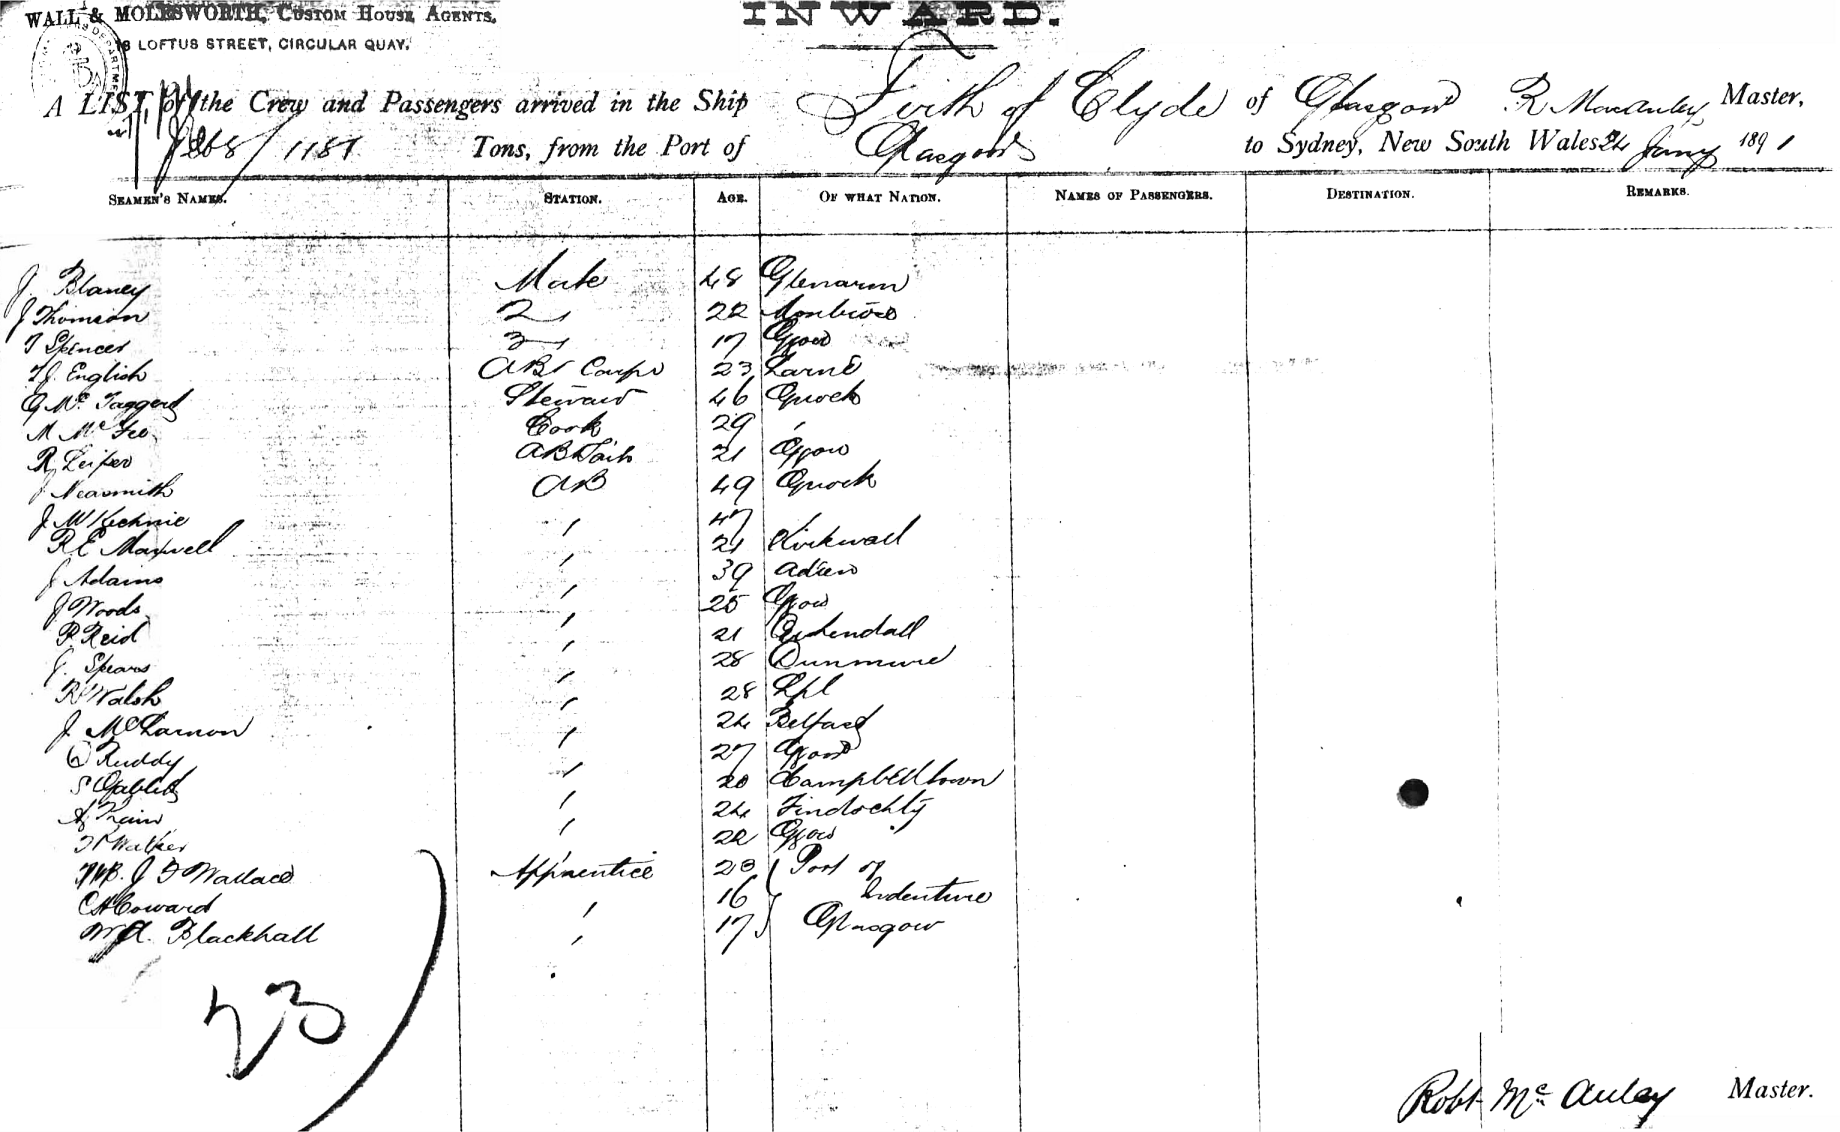 WALL & MOLESWORTH, CUSTOM HOUSE AGENTS,
INWARD.
8 LOFTUS STREET, CIRCULAR QUAY.
A LIST of the Crew and Passengers arrived in the Ship Firth of Clyde of Glasgow R MacAuley Master,
1181 Tons, from the Port of Glasgow to Sydney, New South Wales 24 Jany 1891
SEAMEN'S NAMES. STATION. AGE. OF WHAT NATION. NAMES OF PASSENGERS. DESTINATION. REMARKS.
J. Blaney Mate 48 Glenarm
J Thomson 2 22 Montrose
T Spencer 3 17 Ggow
T J. English AB & Carpr 23 Larne
G Mc Taggert Steward 46 Gnock
M Mc Fee Cook 29 "
R Leiper AB & Sails 21 Ggow
J Neasmith AB 49 Gnock
J. McKechnie " 47 "
R E Maxwell " 21 Kirkwall
J Adams " 39
J Woods " 25 Ggow
P. Reid " 21 Cushendall
J. Spears " 28 Dunmure
R Walsh " 28 Lpl
J. McLarnon " 24 Belfast
Ruddy " 27 Ggow
S " 20 Campbelltown
A Train " 24 Findochty
Walker " 22 Ggow
J F Wallace Apprentice 20 Port of
C H Coward " 16 Indenture
Wm A. Blackhall " 17 Glasgow
23
Robt Mc Auley Master.